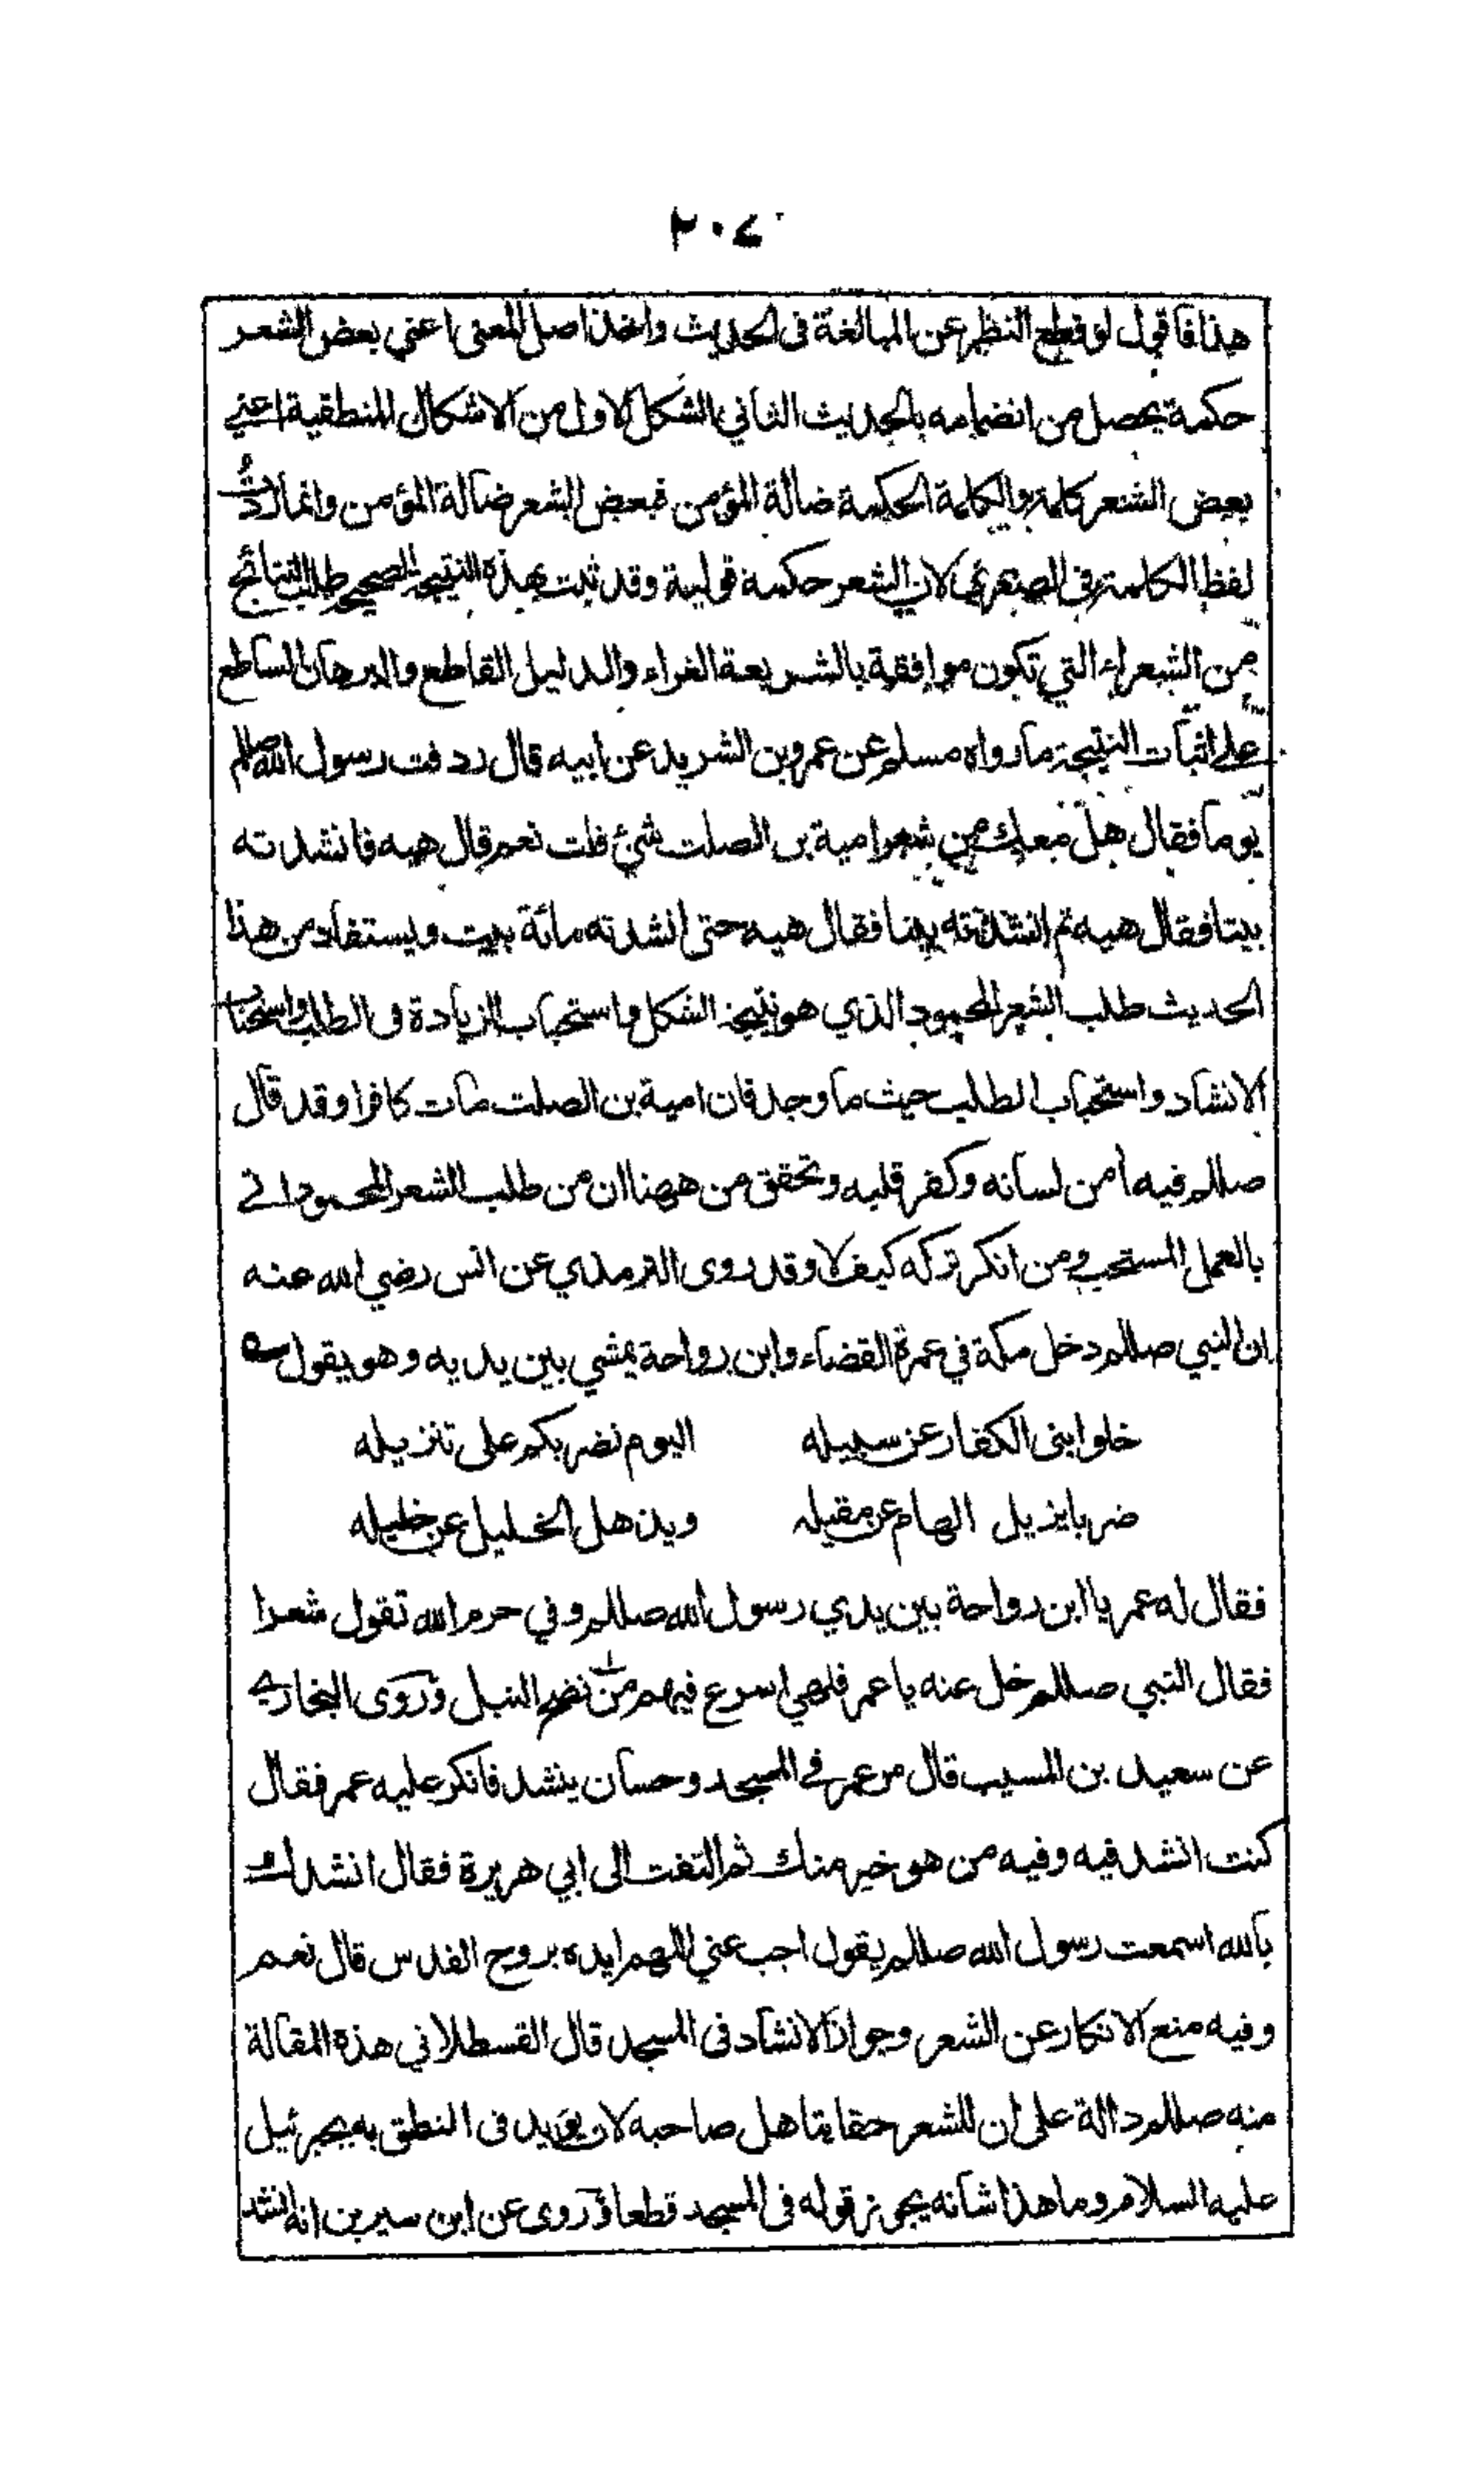 ٢٠٤
هذا فاقول لو قطع النظر عن المبالغة فى الحديث واخذ اصل المعنى اعني بعض الشعر
حكمة يحصل من انضمامه بالحديث الثاني الشكل الاول من الاشكال المنطقية اعني
بعض الشعر كلمة والكلمة الحكمة ضالة المؤمن فبعض الشعر ضالة المؤمن وانما زدت
لفظ الكلمة فى الصغرى لان الشعر حكمة قولية وقد ثبت بهذه النتيجة الصحيحة طلب النتائج
من الشعراء التي تكون موافقة بالشريعة الغراء والدليل القاطع والبرهان الساطع
على اثبات النتيجة ما رواه مسلم عن عمرو بن الشريد عن ابيه قال ردفت رسول الله صللم
يوما فقال هل معك من شعر امية بن الصلت شئ قلت نعم قال هيه فانشدته
بيتا فقال هيه ثم انشدته بيتا فقال هيه حتى انشدته مائة بيت ويستفاد من هذا
الحديث طلب الشعر المحمود الذي هو نتيجة الشكل واستحباب الزيادة فى الطلب واستحباب
الانشاد واستحباب الطلب حيث ما وجد فان امية بن الصلت مات كافرا وقد قال
صللم فيه اٰمن لسانه وكفر قلبه وتحقق من ههنا ان من طلب الشعر المحمود اتى
بالعمل المستحب ومن انكر تركه كيف لا وقد روى الترمذي عن انس رضي الله عنه
ان النبي صللم دخل مكة في عمرة القضاء وابن رواحة يمشي بين يديه وهو يقول
خلوا بنى الكفار عن سبيله اليوم نضربكم على تنزيله
ضربا يزيل الهام عن مقيله ويذهل الخليل عن خليله
فقال له عمر يا ابن رواحة بين يدي رسول الله صللم وفي حرم الله تقول شعرا
فقال النبي صللم خل عنه يا عمر فلهي اسرع فيهم من نضح النبل وروى البخاري
عن سعيد بن المسيب قال مر عمر في المسجد وحسان ينشد فانكر عليه عمر فقال
كنت انشد فيه وفيه من هو خير منك ثم التفت الى ابي هريرة فقال انشدك
بالله اسمعت رسول الله صللم يقول اجب عني اللهم ايده بروح القدس قال نعم
وفيه منع الانكار عن الشعر وجواز الانشاد فى المسجد قال القسطلاني هذه المقالة
منه صللم دالة على ان للشعر حقا يتاهل صاحبه لان يؤيد فى النطق به بجبرئيل
عليه السلام وما هذا شانه يجوز قوله فى المسجد قطعا وروى عن ابن سيرين انه انشد